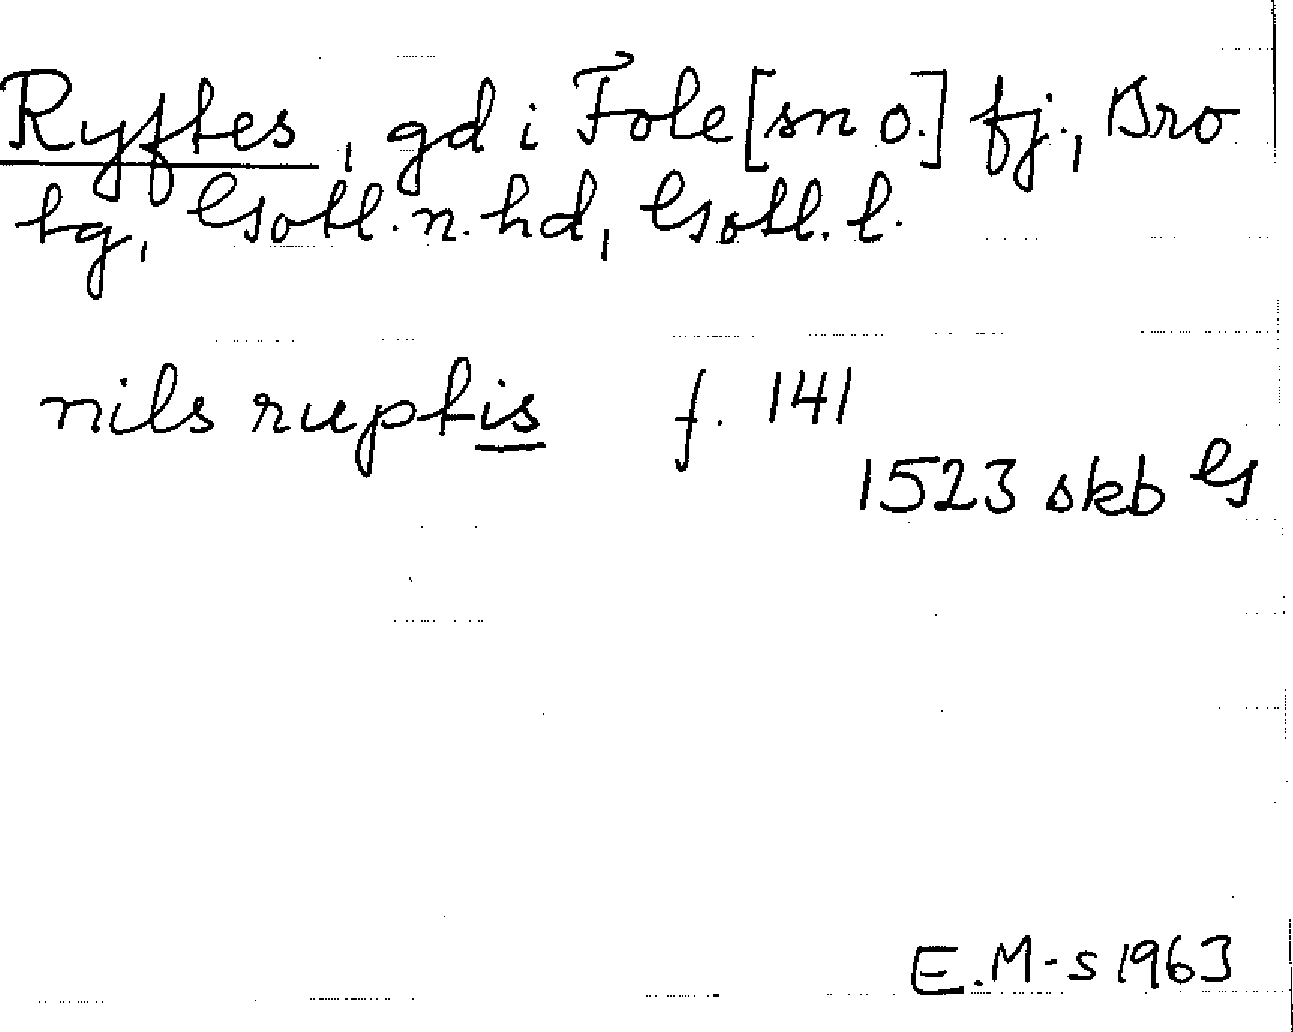 Ryftes, gd i Fole [sn o.] fj., Bro
tg, Gotl. n. hd, Gotl. l.
nils ruptis f. 141
1523 skb G
E. M-s 1963